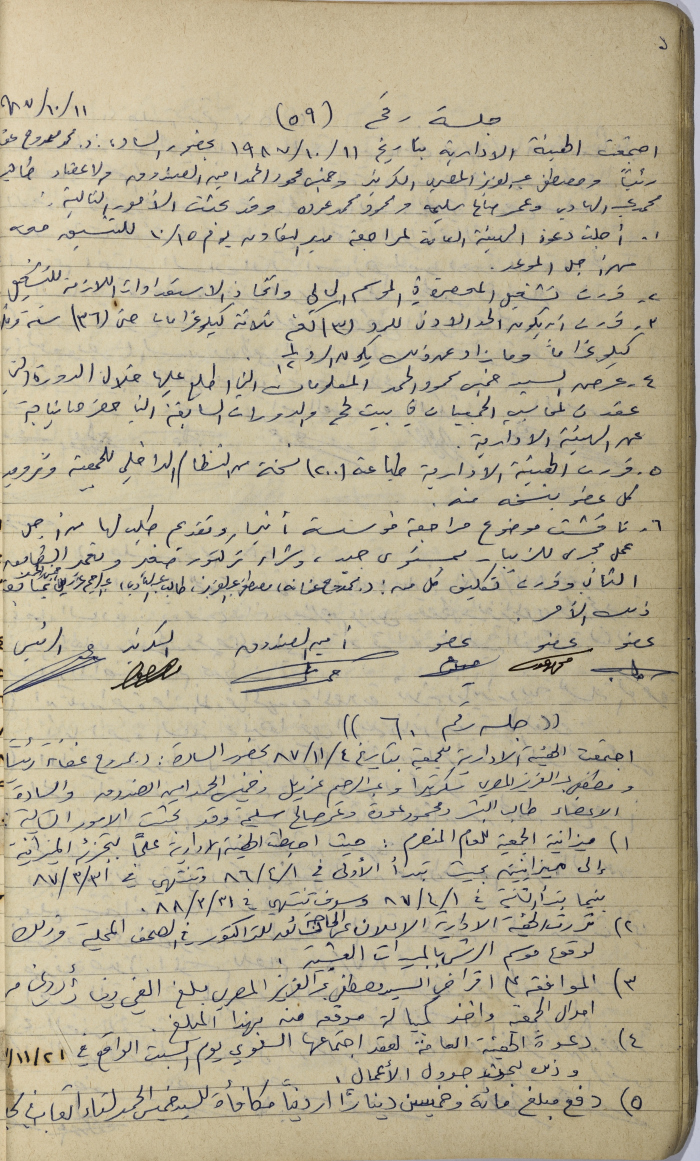 جلسة رقم (٥٩) ٨٧/١٠/١١
اجتمعت الهيئة الادارية بتاريخ ١١/١٠/١٩٨٧ بحضور السادة: د. محمد ممدوح
رئيساً ومصطفى عبد العزيز المصري السكرتير وخميس محمود الحمد امين الصندوق والاعضاء
محمد عبد الهادي وعمر صالح سليم ومحمود محمد عودة وقد بحثت الأمور التالية:
١. أجلت دعوة الهيئة العامة لمراجعة مدير التعاون يوم ١٠/١٥ للتنسيق معه
من أجل الموعد.
٢. قررت تشغيل المعصرة في الموسم الحالي واتخاذ الاستعدادات اللازمة للتشغيل
٣. قررت أن يكون الحد الادنى للرد (٣) كغم ثلاثة كيلو غرامات حتى (٣٦) ستة وثلاثين
كيلو غراماً وما زاد عن ذلك يكون الرد ١/١٢
٤. عرض السيد خميس محمود الحمد المعلومات التي اطلع عليها خلال الدورة التي
عقدت لمحاسبي الجمعيات في بيت لحم والدورات السابقة التي حضرها نيابة
عن الهيئة الادارية.
٥. قررت الهيئة الادارية طباعة (٢٠٠) نسخة من النظام الداخلي للجمعية وتزويد
كل عضو بنسخة منه.
٦. ناقشت موضوع مراجعة مؤسسة أنيرا وتقديم طلب لها من أجل
عمل مجرى للزيبار بمستوى جيد، وشراء تركتور صغير
الثاني وقررت تكليف كل من: (د. ممدوح عنانه، مصطفى عبد العزيز، طالب
ذلك الأمر.
عضو عضو عضو أمين الصندوق السكرتير الرئيس
((جلسة رقم ٦٠))
اجتمعت الهيئة الادارية للجمعية بتاريخ ٨٧/١١/٤ بحضور السادة: د. ممدوح عنانة رئيساً
ومصطفى عبد العزيز المصري سكرتيراً وعبد الرحيم عزريل وخميس الحمد امين الصندوق والسادة
الاعضاء طالب البشر ومحمود عودة وعمر صالح سليم وقد بحثت الامور التالية:
١) ميزانية الجمعية للعام المنصرم: حيث احيطت الهيئة الادارية علماً بتجزئة الميزانية
إلى ميزانيتين بحيث تبدأ الأولى في ٨٦/٤/١ وتنتهي في ٨٧/٣/٣١
بينما بدأت الثانية في ٨٧/٤/١ وسوف تنتهي في ٨٨/٣/٣١.
٢) قررت الهيئة الادارية الاعلان عن الحاجة لسائق للتراكتور في الصحف المحلية وذلك
لوقوع موسم الرش بالمبيدات العشبية.
٣) الموافقة على اقراض السيد مصطفى عبد العزيز المصري مبلغ الفي دينار أردني من
اموال الجمعية واخذ كمبيالة موقعة منه بهذا المبلغ.
٤) دعوة الهيئة العامة لعقد اجتماعها السنوي يوم السبت الواقع في ١١/٢١
وذلك لبحث جدول الأعمال.
٥) دفع مبلغ مائة وخمسين ديناراً اردنياً مكافأة للسيد خميس الحمد لقاء أتعابه